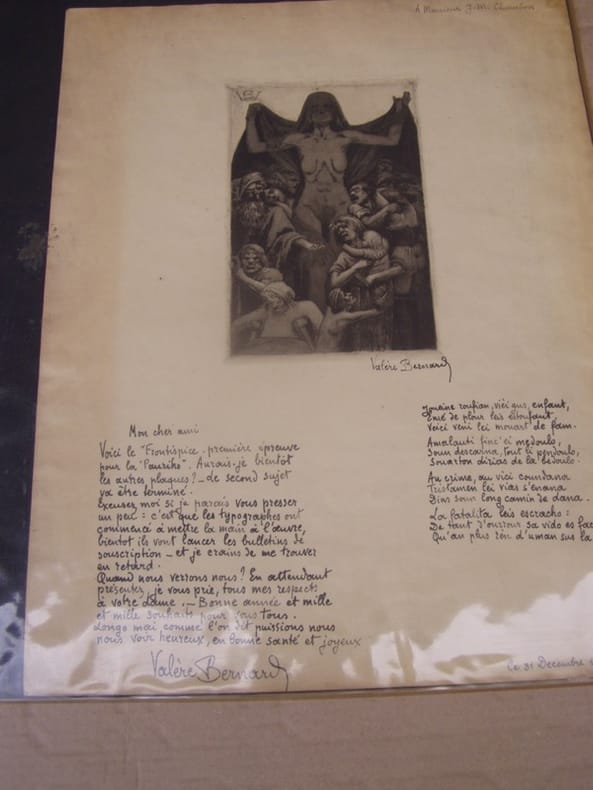 A Monsieur J. M. Chambon
Valère Bernard
Mon cher ami
Voici le "Frontispice. première épreuve
pour la "Pauriho". Aurais-je bientôt
les autres plaques? - de second sujet
va être terminé.
Excusez moi si je parais vous presser
un peu : c'est que les typographes ont
commencé à mettre la main à l'œuvre,
bientôt ils vont lancer les bulletins de
souscription - et je crains de me trouver
en retard.
Quand nous verrons nous? En attendant
présentez, je vous prie, tous mes respects
à votre dame. - Bonne année et mille
et mille souhaits pour vous tous.
Longo mai comme l'on dit puissions nous
nous voir heureux, en bonne santé et joyeux
Valère Bernard
enfant,
de plour leis estoufant,
Veici veni lei mouart de fam.
Amalauti finc' ei medoulo,
Soun descarna, tout li pendoulo,
de la
Au crime, au vici coundana
Tristamen lei vias s'enana
Dins soun long camin de dana.
La fatalita leis escracho :
De tant d'ourrour sa vido es
Qu'an plus ren d'uman sus la
Le 31 Decembre